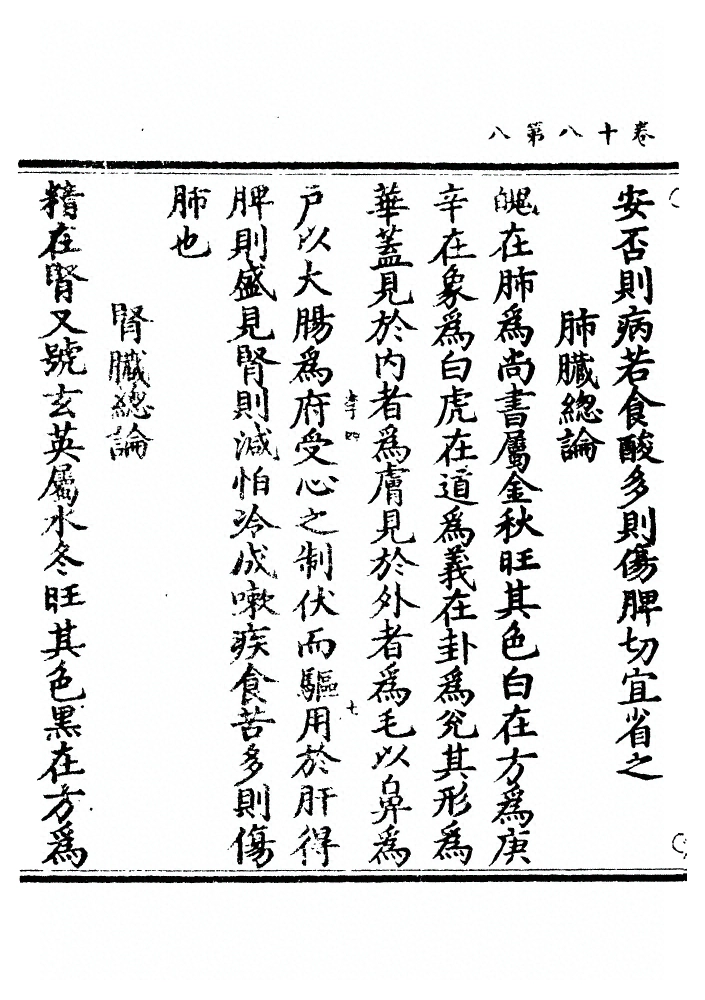 卷十八第八
安否則病若食酸多則傷脾切宜省之
肺臟總論
魄在肺爲尚書屬金秋旺其色白在方爲庚
辛在象爲白虎在道爲義在卦爲兌其形爲
華蓋見於內者爲膚見於外者爲毛以鼻爲
戶以大腸爲府受心之制伏而驅用於肝得
脾則盛見腎則減怕冷成嗽疾食苦多則傷
肺也
腎臟總論
精在腎又號玄英屬水冬旺其色黑在方爲